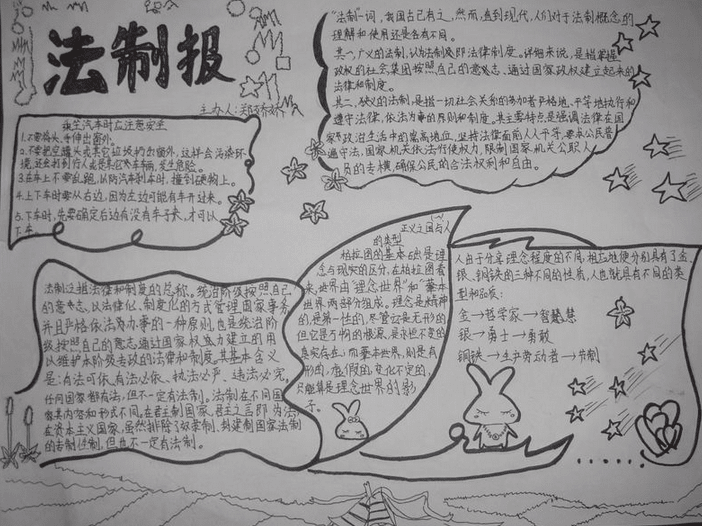 法制报
主办人:郑娇娇
乘坐汽车时应注意安全
1.不要将头、手伸出窗外。
2.不要把空罐头或其它垃圾扔出窗外,这样会污染环
境,还会打到行人或是其它汽车车辆,发生危险。
3.在车上不要乱跑,以防汽车刹车时,撞到硬物上。
4.上下车时要从右边,因为左边可能有车开过来。
5.下车时,先要确定后边有没有车子来,才可以
下车。
"法制"一词,我国古已有之,然而,直到现代,人们对于法制概念的
理解和使用还是各有不同。
其一,广义的法制,认为法制即法律制度。详细来说,是指掌握
政权的社会集团按照自己的意志,通过国家政权建立起来的
法律和制度。
其二,狭义的法制,是指一切社会关系的参加者严格地、平等地执行和
遵守法律,依法办事的原则和制度。其主要特点是强调法律在国
家政治生活中的崇高地位,坚持法律面前人人平等,要求公民普
遍守法,国家机关依法行使权力,限制国家机关公职人
员的专横,确保公民的合法权利和自由。
法制是指法律和制度的总称。统治阶级按照自己
的意志,以法律化、制度化的方式管理国家事务,
并且严格依法办事的一种原则,也是统治阶
级按照自己的意志通过国家权力建立的用
以维护本阶级专政的法律和制度,其基本含义
是:有法可依、有法必依、执法必严、违法必究,
任何国家都有法,但不一定有法制。法制在不同国
家其内容和形式不同,在君主制国家,君主之言即为法,
在资本主义国家,虽然排除了奴隶制、封建制国家法制
的专制性制,但也不一定有法制。
正义之国与人
的类型
柏拉图的基本出发是理
念与现实的区分,在柏拉图看
来,世界由"理念世界"和"基本
世界"两部分组成。理念是精神
的,是第一性的,尽管它是无形的,
但它是万物的根源,是永恒不变的
真实存在;而基本世界,则是有
形的,虚假的,变化不定的,
只能算是理念世界的影
子。
人由于分享理念程度的不同,相应地便分别具有了金、
银、铜铁的三种不同的性质,人也就具有不同的类
型和品质:
金→哲学家→智慧
银→勇士→勇敢
铜铁→生产劳动者→节制